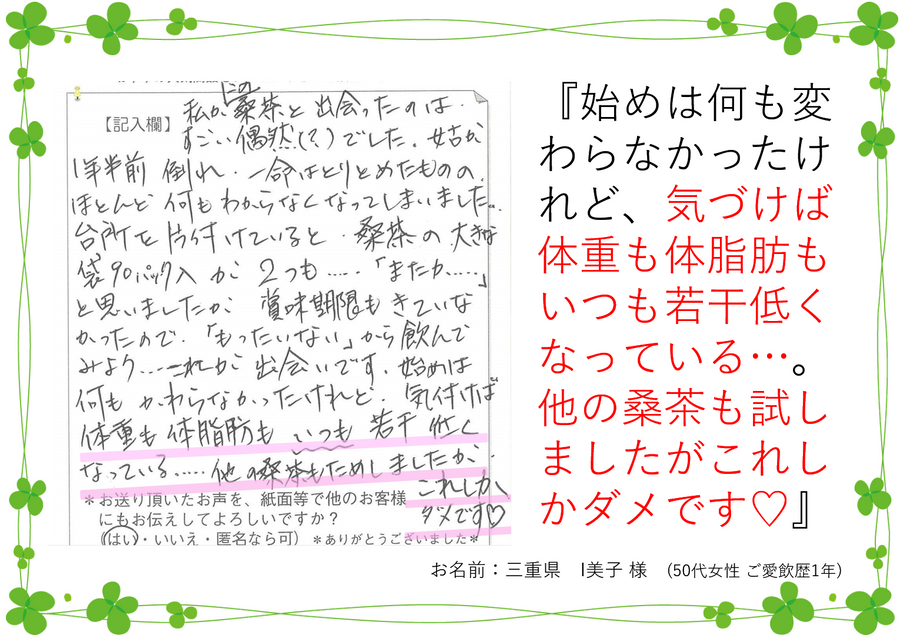 私がこの桑茶と出会ったのは.
【記入欄】
すごい偶然(?)でした。姑が
1年半前 倒れ、一命はとりとめたものの、
ほとんど何もわからなくなってしまいました。
台所を片付けていると、桑茶の大きな
袋90パック入が 2つも……「またか……」
と思いましたが 賞味期限もきていな
かったので、「もったいない」から飲んで
みよう……これが 出会いです。始めは
何も かわらなかったけれど、気付けば
体重も体脂肪も いつも 若干 低く
なっている……他の桑茶もためしましたが、
これしか、
ダメです♡
＊お送り頂いたお声を、紙面等で他のお客様
にもお伝えしてよろしいですか？
(はい・いいえ・匿名なら可) ＊ありがとうございました＊
『始めは何も変
わらなかったけ
れど、気づけば
体重も体脂肪も
いつも若干低く
なっている…。
他の桑茶も試し
ましたがこれし
かダメです♡』
お名前：三重県　I美子 様　(50代女性 ご愛飲歴1年)